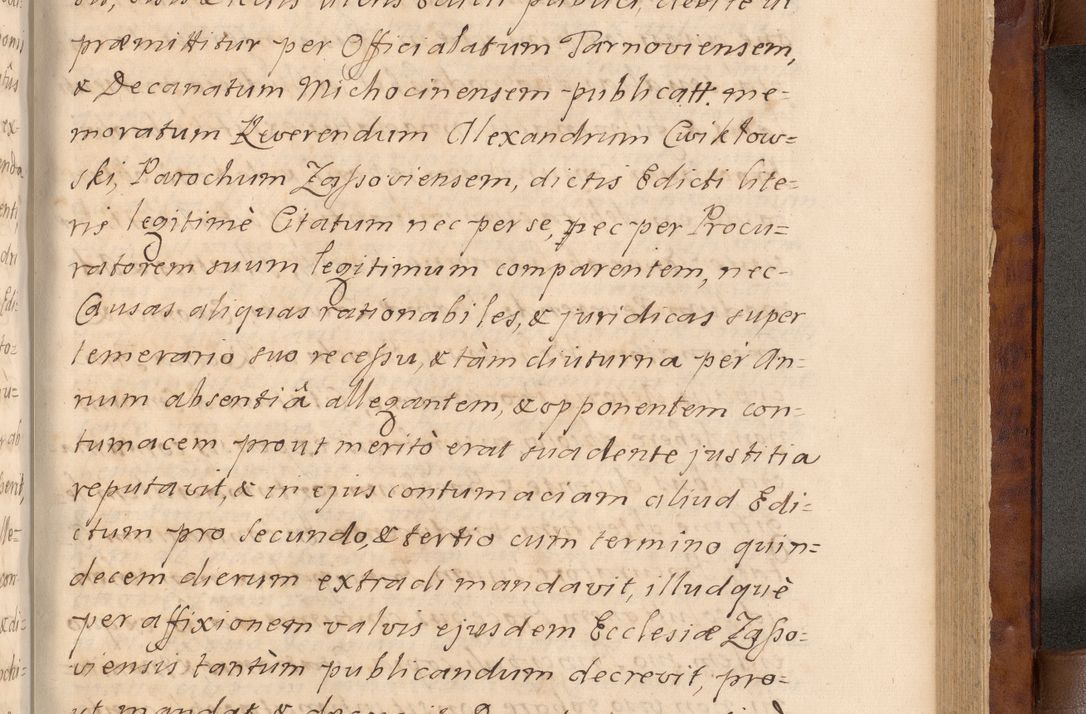 præmittitur per Officialatum Tarnoviensem,
& Decanatum Michocinensem publicatt. me=
moratum Reverendum Alexandrum Cwiklow=
ski, Parochum Zaſsoviensem, dictis Edicti lite=
ris legitimè Citatum nec per se, nec per Procu=
ratorem suum legitimum comparentem, nec
Causas aliquas rationabiles, & juridicas super
temerario suo receſsu, & tàm diuturna per An=
num absentiâ allegantem, & opponentem con=
tumacem prout meritò erat suadente justitia
reputavit, & in ejus contumaciam aliud Edi=
ctum pro secundo, & tertio cum termino quin=
decem dierum extradi mandavit, illudquè
per affixionem valvis ejusdem Ecclesiæ Zaſso=
viensis tantùm publicandum decrevit, pro=
ut mandat &